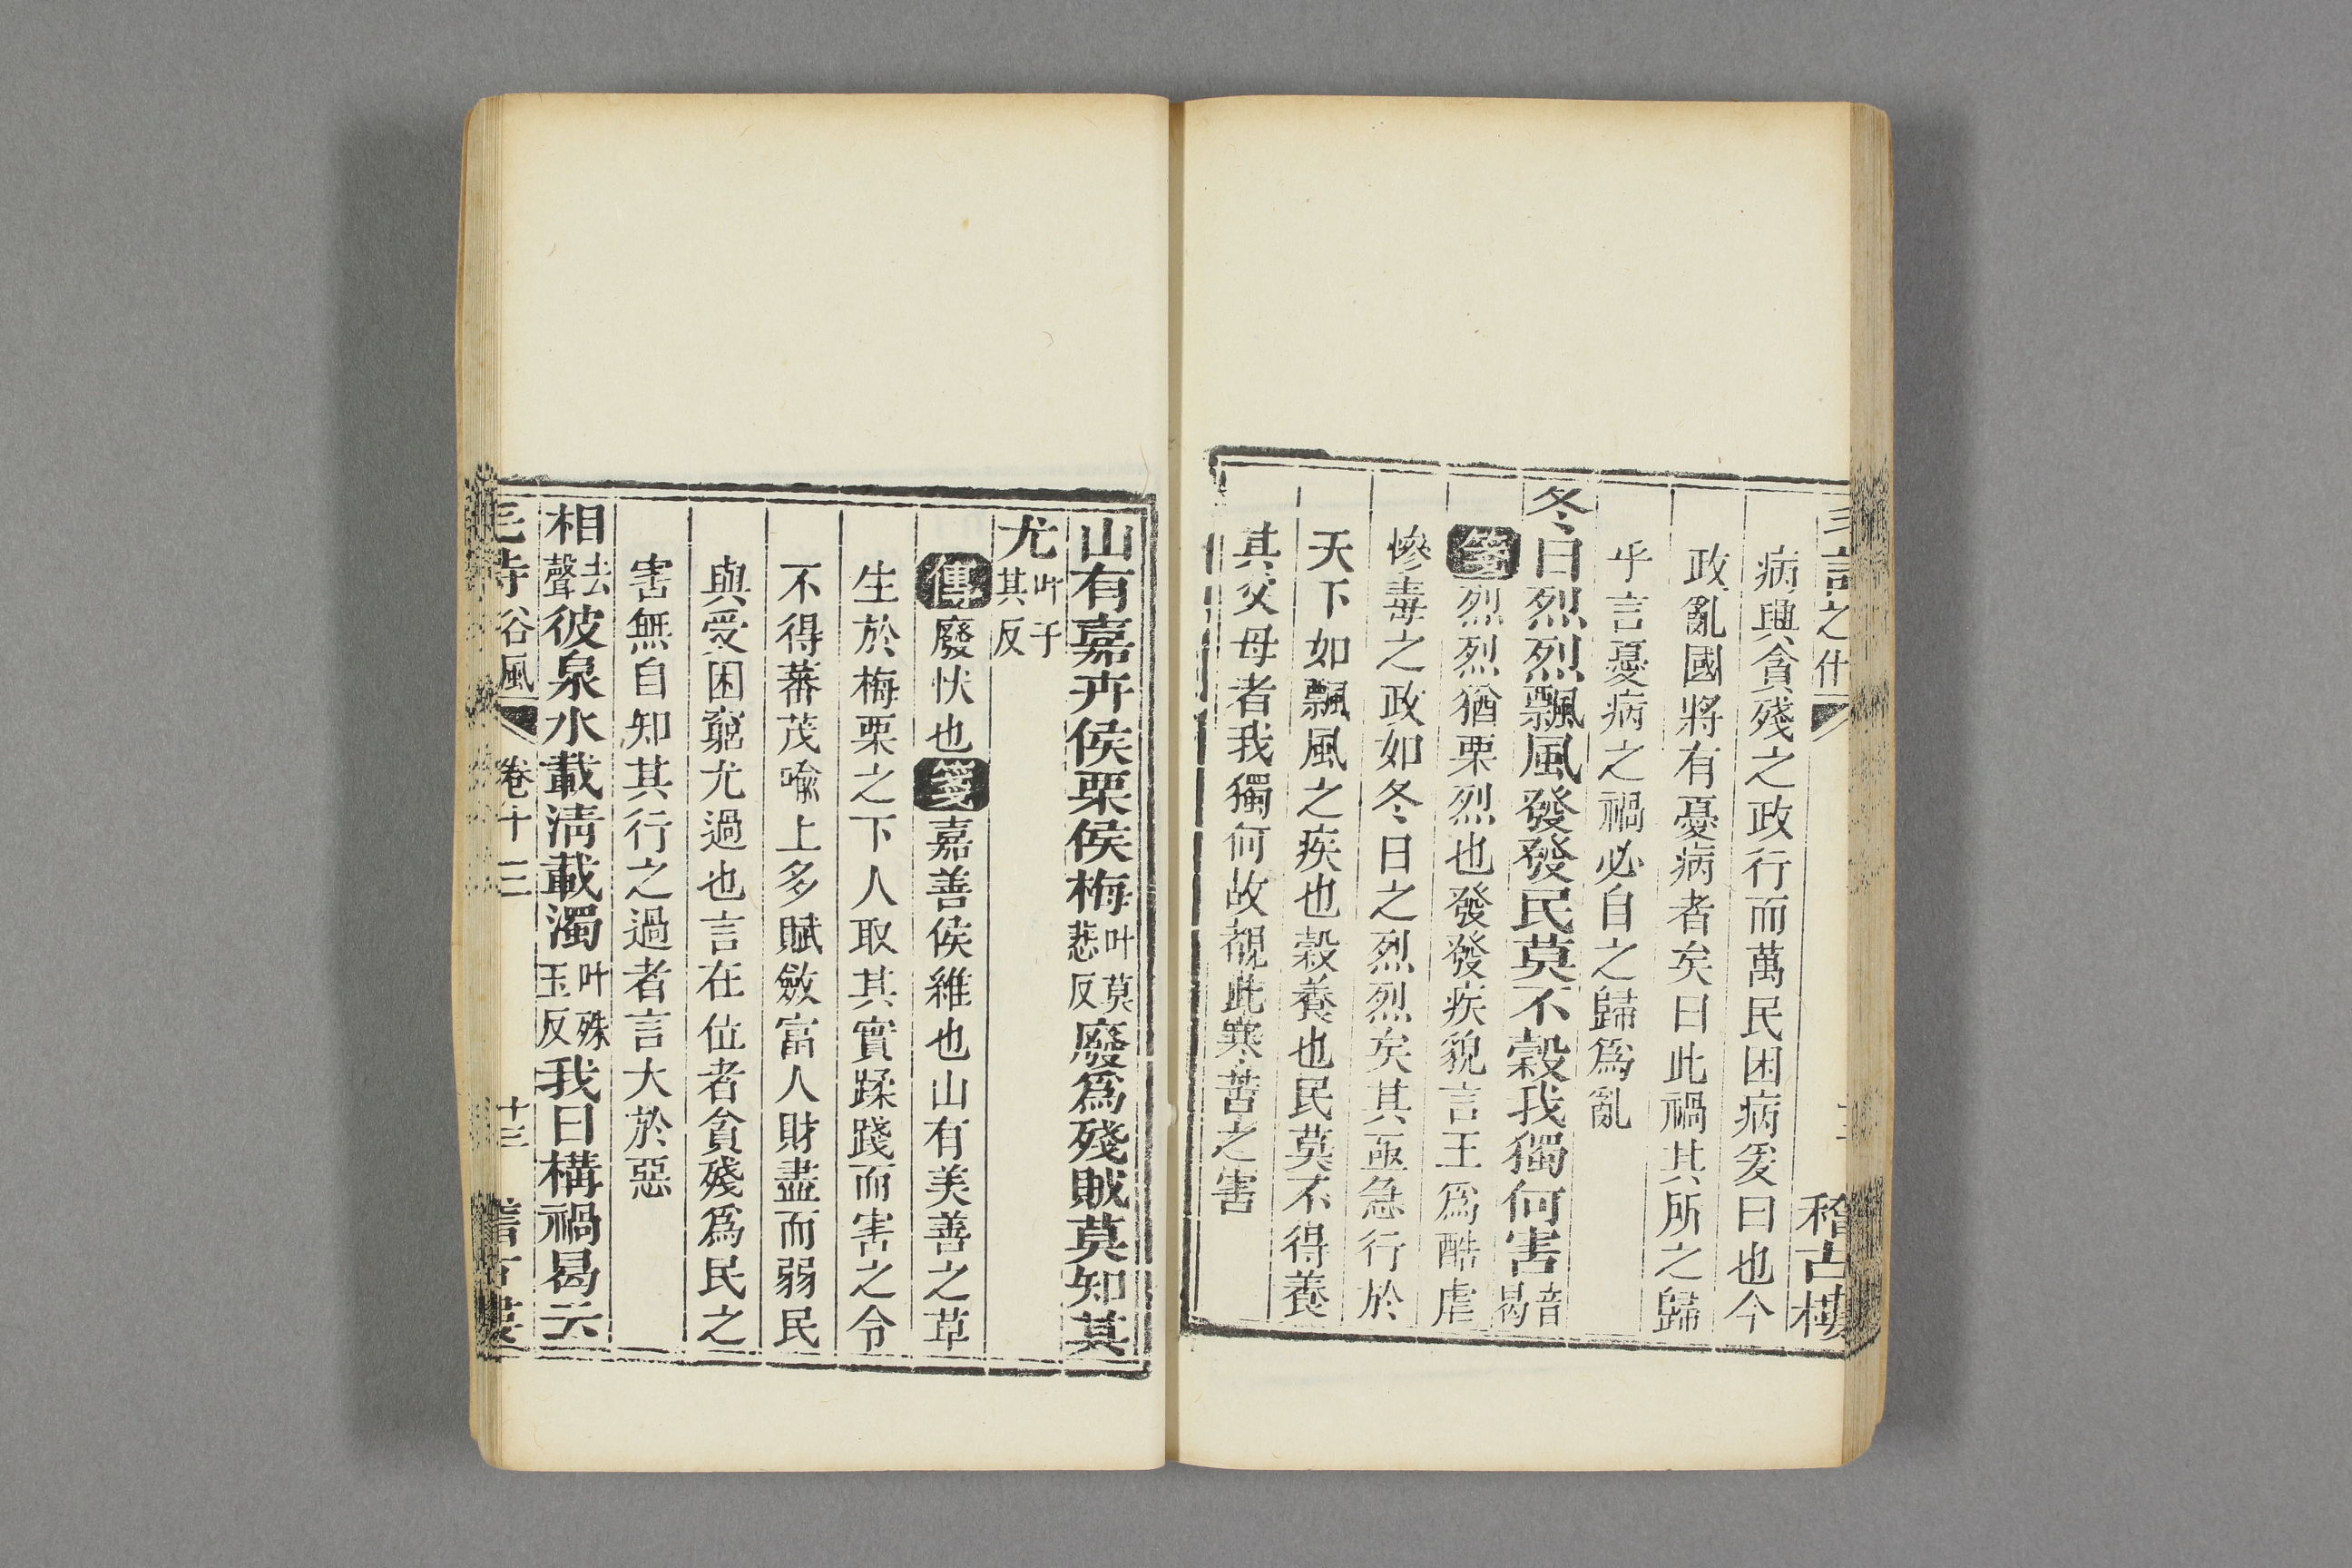 之什 稽古樓
病與貪殘之政行而萬民困病爰曰也今
政亂國將有憂病者矣曰此禍其所之歸
乎言憂病之禍必自之歸爲亂
冬日烈烈飄風發發民莫不穀我獨何害音曷
箋烈烈猶栗烈也發發疾貌言王爲酷虐
慘毒之政如冬日之烈烈矣其亟急行於
天下如飄風之疾也穀養也民莫不得養
其父母者我獨何故覩此寒苦之害
山有嘉卉侯栗侯梅叶莫悲反廢爲殘賊莫知其
尤叶于其反
傳廢忕也箋嘉善侯維也山有美善之草
生於梅栗之下人取其實蹂踐而害之令
不得蕃茂喻上多賦斂富人財盡而弱民
與受困窮尤過也言在位者貪殘爲民之
害無自知其行之過者言大於惡
相去聲彼泉水載清載濁叶殊玉反我日構禍曷云
毛詩谷風 卷十三 十三 稽古樓